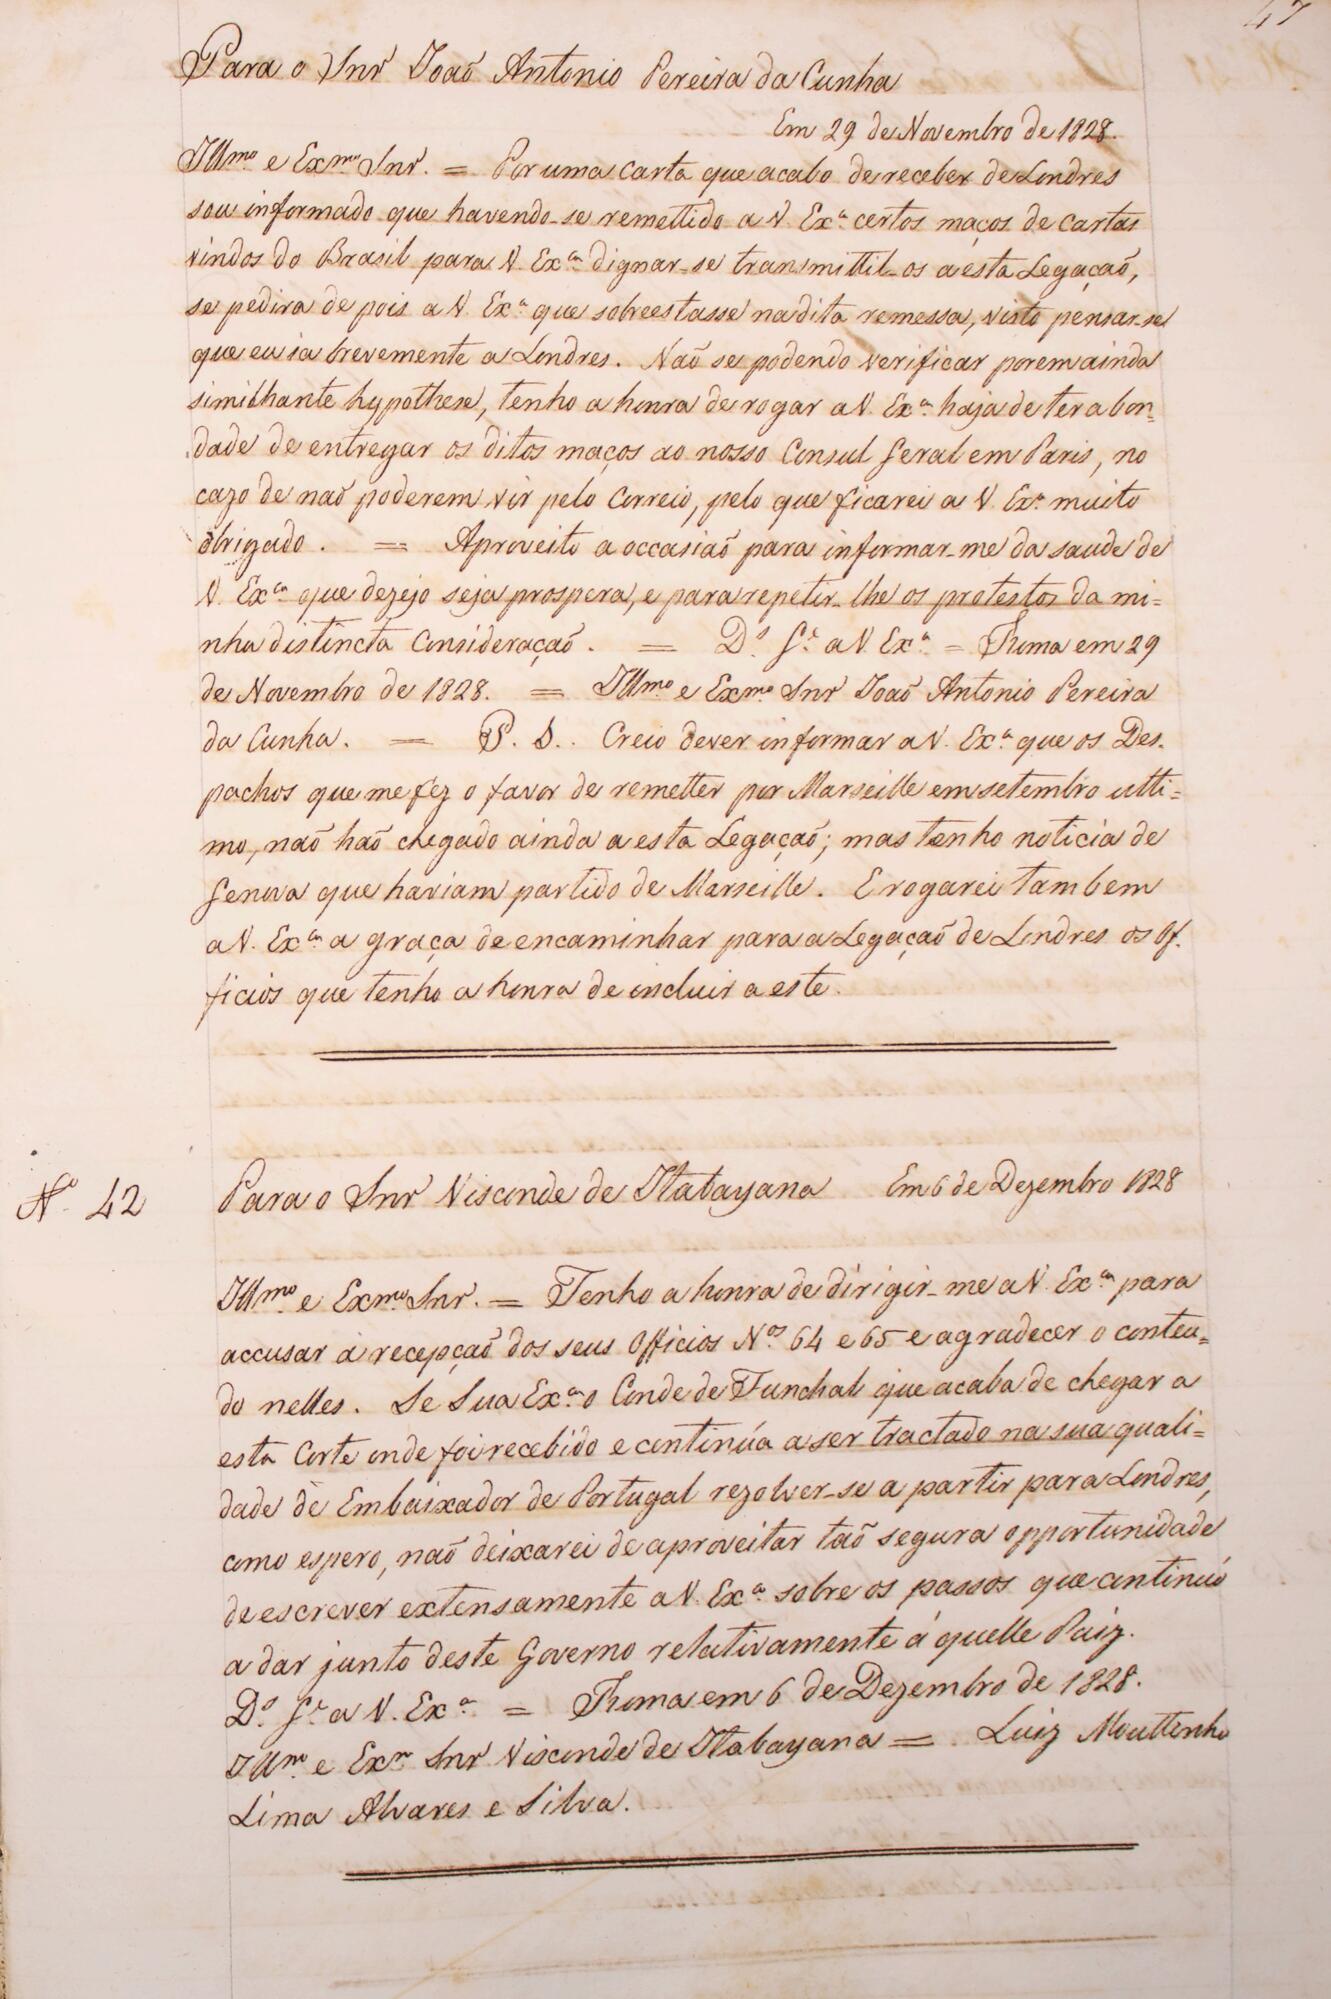 47
Para o Snr João Antonio Pereira da Cunha
Em 29 de Novembro de 1828.
Illmo e Exmo Snr. = Por uma carta que acabo de receber de Londres
sou informado que havendo-se remettido a V. Exa certos maços de cartas
vindos do Brasil para V. Exa dignar-se transmittil-os a esta Legação,
se pedira depois a V. Exa que sobreestasse na dita remessa, visto pensar-se
que eu ia brevemente a Londres. Não se podendo verificar porem ainda
similhante hypothese, tenho a honra de rogar a V. Exa haja de ter a bon=
dade de entregar os ditos maços ao nosso Consul Geral em Paris, no
cazo de não poderem vir pelo Correio, pelo que ficarei a V. Exa muito
obrigado. = Aproveito a occasião para informar-me da saude de
V. Exa que dezejo seja prospera, e para repetir-lhe os protestos da mi=
nha distincta Consideração. = Ds. Ge a V. Exa = Roma em 29
de Novembro de 1828. = Illmo e Exmo Snr João Antonio Pereira
da Cunha. = P. S. Creio dever informar a V. Exa que os Des-
pachos que me fez o favor de remetter por Marseille em setembro ulti=
mo, não hão chegado ainda a esta Legação; mas tenho noticia de
Genova que haviam partido de Marseille. E rogarei tambem
a V. Exa a graça de encaminhar para a Legação de Londres os Of-
ficios que tenho a honra de incluir a este.
No 42
Para o Snr Visconde de Itabayana Em 6 de Dezembro 1828
Illmo e Exmo Snr. = Tenho a honra de dirigir-me a V. Exa para
accusar a recepção dos seus Officios Nos 64 e 65 e agradecer o conteu=
do nelles. Se Sua Exa o Conde de Funchal que acaba de chegar a
esta Corte onde foi recebido e continúa a ser tractado na sua quali=
dade de Embaixador de Portugal rezolver-se a partir para Londres,
como espero, não deixarei de aproveitar tão segura opportunidade
de escrever extensamente a V. Exa sobre os passos que continuo
a dar junto deste Governo relativamente á quelle Paiz.
Ds. Ge a V. Exa = Roma em 6 de Dezembro de 1828.
Illmo e Exmo Snr Visconde de Itabayana = Luiz Mouttenho
Lima Alvares e Silva.